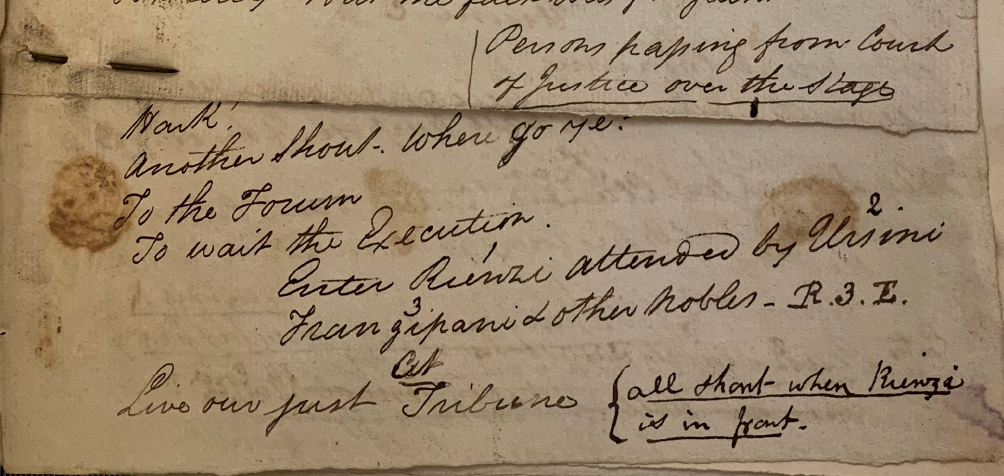 Persons passing from Court
of Justice over the Stage
Hark!
Another Shout. Where go ye?
To the Forum
To wait the Execution.
Enter Rienzi attended by Ursini 2
Frangipani 3 & other Nobles - R.3.E.
Cit
Live our just Tribune
{all shout when Rienzi
is in front.